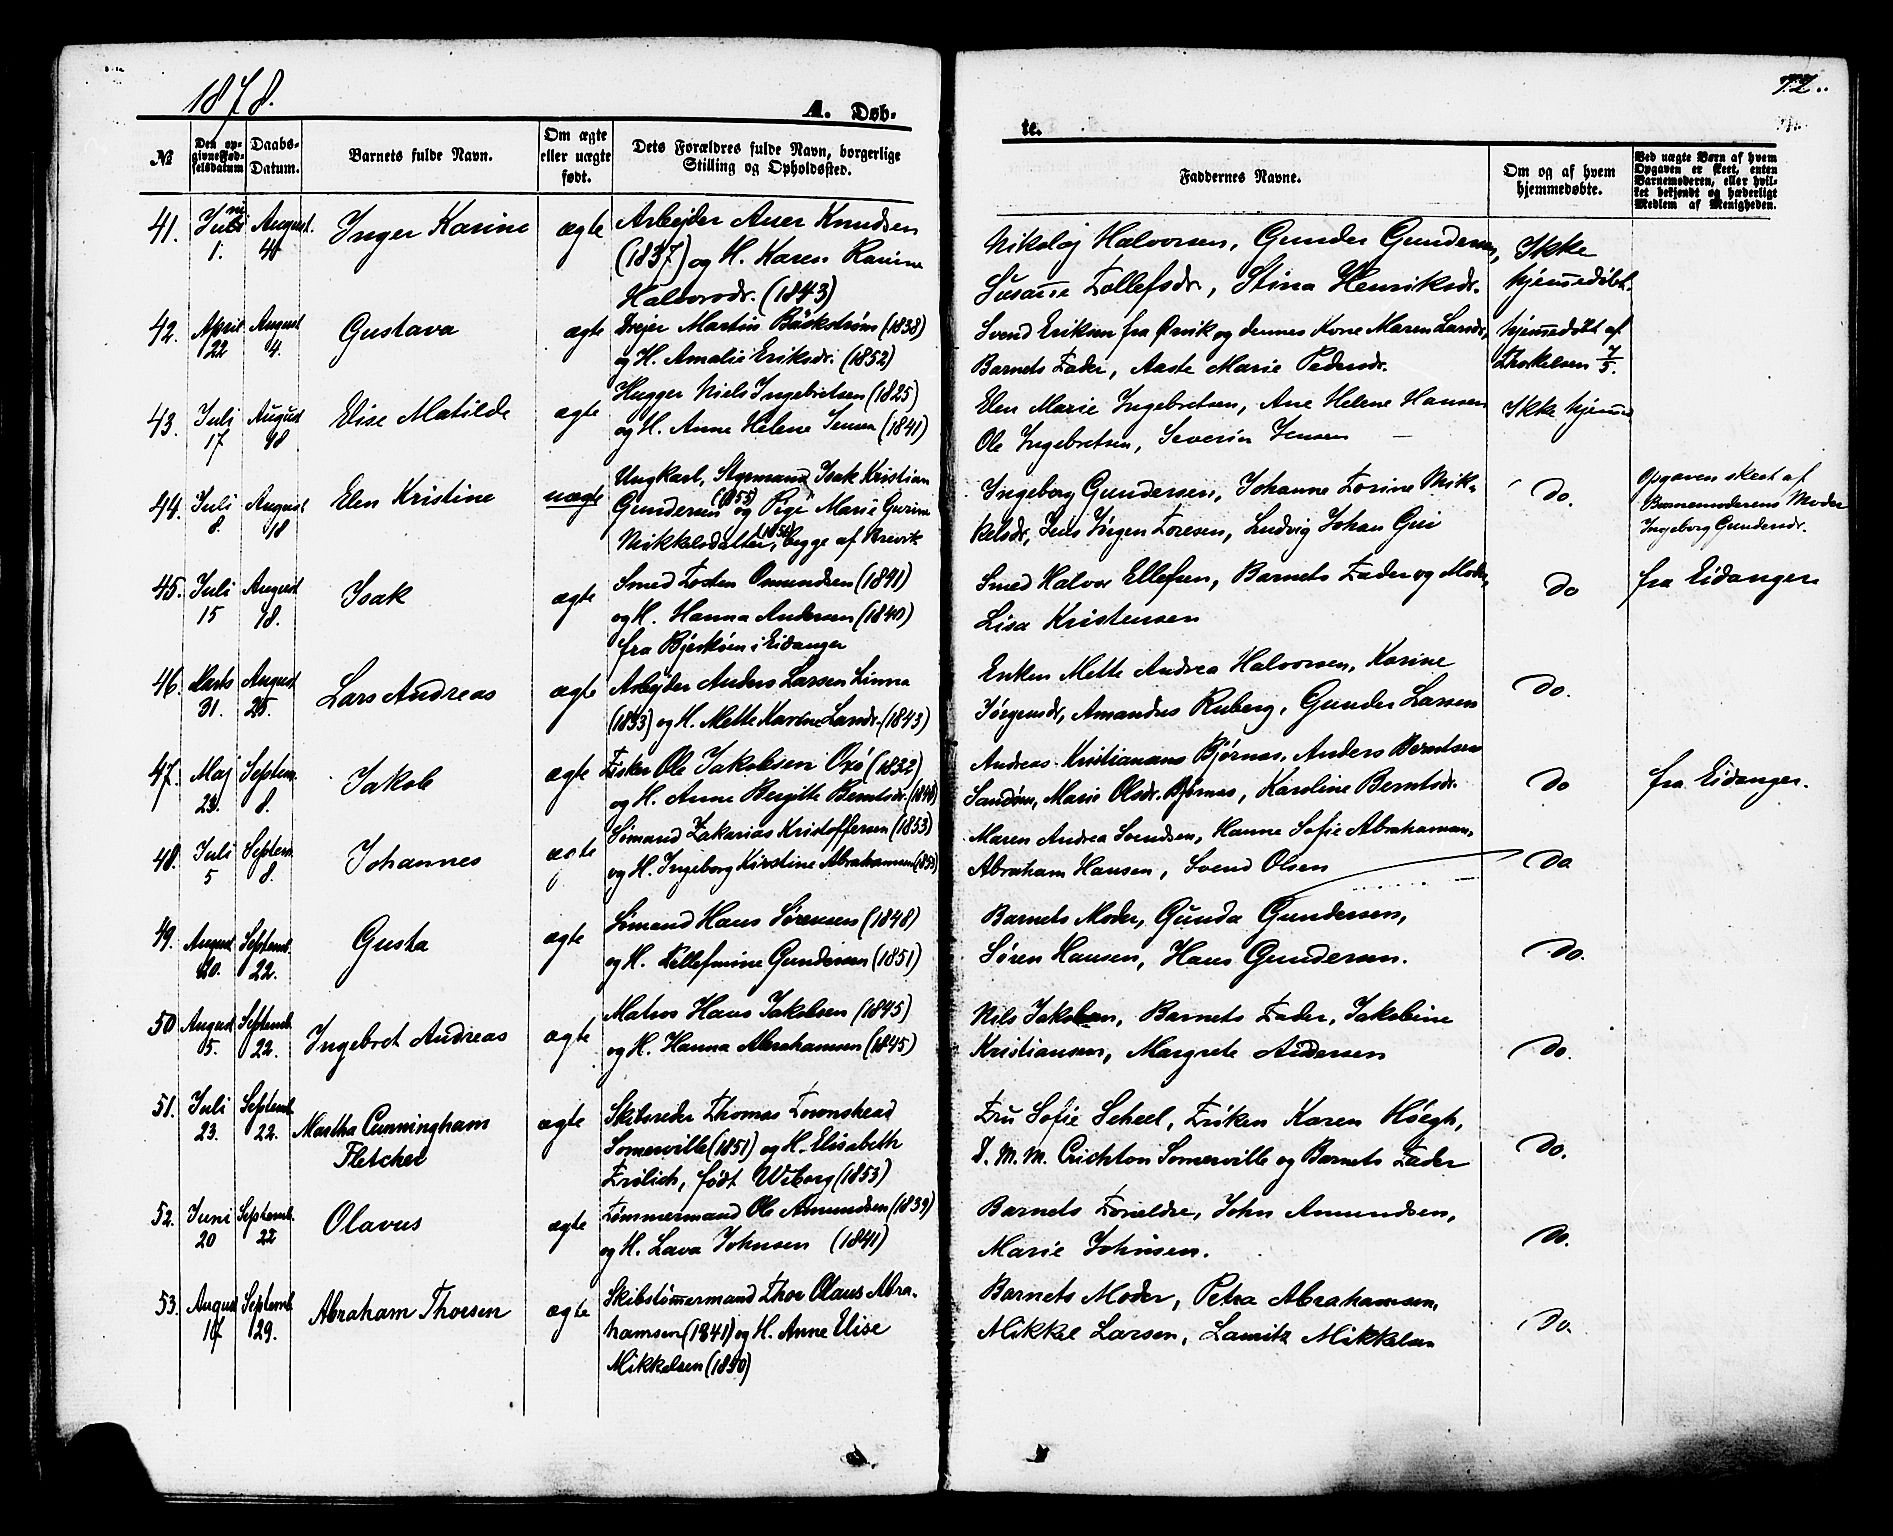 1878.
A. Døb-
te.
72.
№
Den op-
givne Fød-
selsdatum
Daabs-
Datum.
Barnets fulde Navn.
Om ægte
eller uægte
født.
Dets Forældres fulde Navn, borgerlige
Stilling og Opholdssted.
Faddernes Navne.
Om og af hvem
hjemmedøbte.
Ved uægte Børn af hvem
Opgaven er skeet, enten
Barnemoderen, eller hvil-
ket bekjendt og hæderligt
Medlem af Menigheden.
41. Juni 1. August 4 Inger Karine ægte Arbejder Aner Knudsen
(1837) og H. Karen Karine
Halvorsdr. (1843)
Nikolaj Halvorsen, Gunder Gundersen,
Susanne Tollefsdr, Stina Henriksdr.
Ikke
hjemmedøbt.
42. April 22 August 4. Gustava ægte Drejer Martin Bäckstrøm (1838)
og H. Amalie Eriksdr. (1852)
Svend Eriksen fra Ørvik og dennes Kone Maren Larsdr,
Barnets Fader, Aaste Marie Pedersdr.
hjemmedøbt af
Thorkelsen 7/5.
43. Juli 17 August 18 Elise Matilde ægte Hugger Niels Ingebretsen (1825)
og H. Anne Helene Jensen (1841)
Elen Marie Ingebretsen, Ane Helene Hansen
Ole Ingebretsen, Severin Jensen
Ikke hjemme
44. Juli 8. August 18 Elen Kristine uægte Ungkarl, Styrmand Isak Kristian
Gundersen (1855) og Pige Marie Gurine
Nikkelsdatter, begge af Brevik
Ingeborg Gundersen, Johanne Torine Mik-
kelsdr, Jens Jörgen Toresen, Ludvig Johan Gui
do.
Opgaven skeet af
Barnemoderens Moder
Ingeborg Gundersdr.
45. Juli 15 August 18. Isak ægte Smed Tosten Osmundsen (1841)
og H. Hanna Andersen (1840)
fra Bjerkøen i Eidanger
Smed Halvor Ellefsen, Barnets Fader og Moder,
Lisa Kristensen
do
fra Eidanger
46. Marts 31. August 25. Lars Andreas ægte Arbejder Anders Larsen Linna
(1853) og H. Mette Karine Larsdr. (1843)
Enken Mette Andrea Halvorsen, Karine
Jörgensdr, Amandus Ruberg, Gunder Larsen
do.
47. Maj 23. Septem. 8. Jakob ægte Fisker Ole Jakobsen Oxö (1832)
og H. Anne Bergitte Berntsdr. (1848)
Andreas Kristiansens Bjørnæs, Anders Berntsen
Sandøen, Marie Olsdr. Bjørnæs, Karoline Berntsdr.
do
fra Eidanger.
48. Juli 5 Septem. 8. Johannes ægte Sömand Zakarias Kristoffersen (1853)
og H. Ingeborg Kirstine Abrahamsen
Maren Andrea Svendsen, Hanne Sofie Abrahamsen,
Abraham Hansen, Svend Olsen
do
49. August 20. Septemb. 22. Gusta ægte Sömand Hans Sörensen (1848)
og H. Ellefmine Gundersen (1851)
Barnets Moder, Gunda Gundersen,
Sören Hansen, Hans Gundersen.
do.
50 August 5. Septemb. 22. Ingebret Andreas ægte Matros Hans Jakobsen (1845)
og H. Hanna Abrahamsen (1845)
Nils Jakobsen, Barnets Fader, Jakobine
Kristiansen, Margrete Andersen
do.
51. Juli 23. Septemb. 22. Martha Cunningham
Fletcher ægte Skibsreder Thomas Townshead
Somerville (1851) og H. Elisabeth
Frölich, født Wiborg (1853)
Fru Sofie Scheel, Fröken Karen Höegh,
T. M. M. Crichton Somerville og Barnets Fader
do.
52. Juni 20 Septemb. 22 Olavus ægte Tömmermand Ole Amundsen (1839)
og H. Lava Johnsen (1841)
Barnets Forældre, John Amundsen,
Marie Johnsen.
do.
53. August 17 Septemb. 29. Abraham Thorsen ægte Skibstömmermand Thor Olaus Abra-
hamsen (1841) og H. Anne Elise
Mikkelsen (1850)
Barnets Moder, Petra Abrahamsen,
Mikkel Larsen, Lauritz Mikkelsen
do.